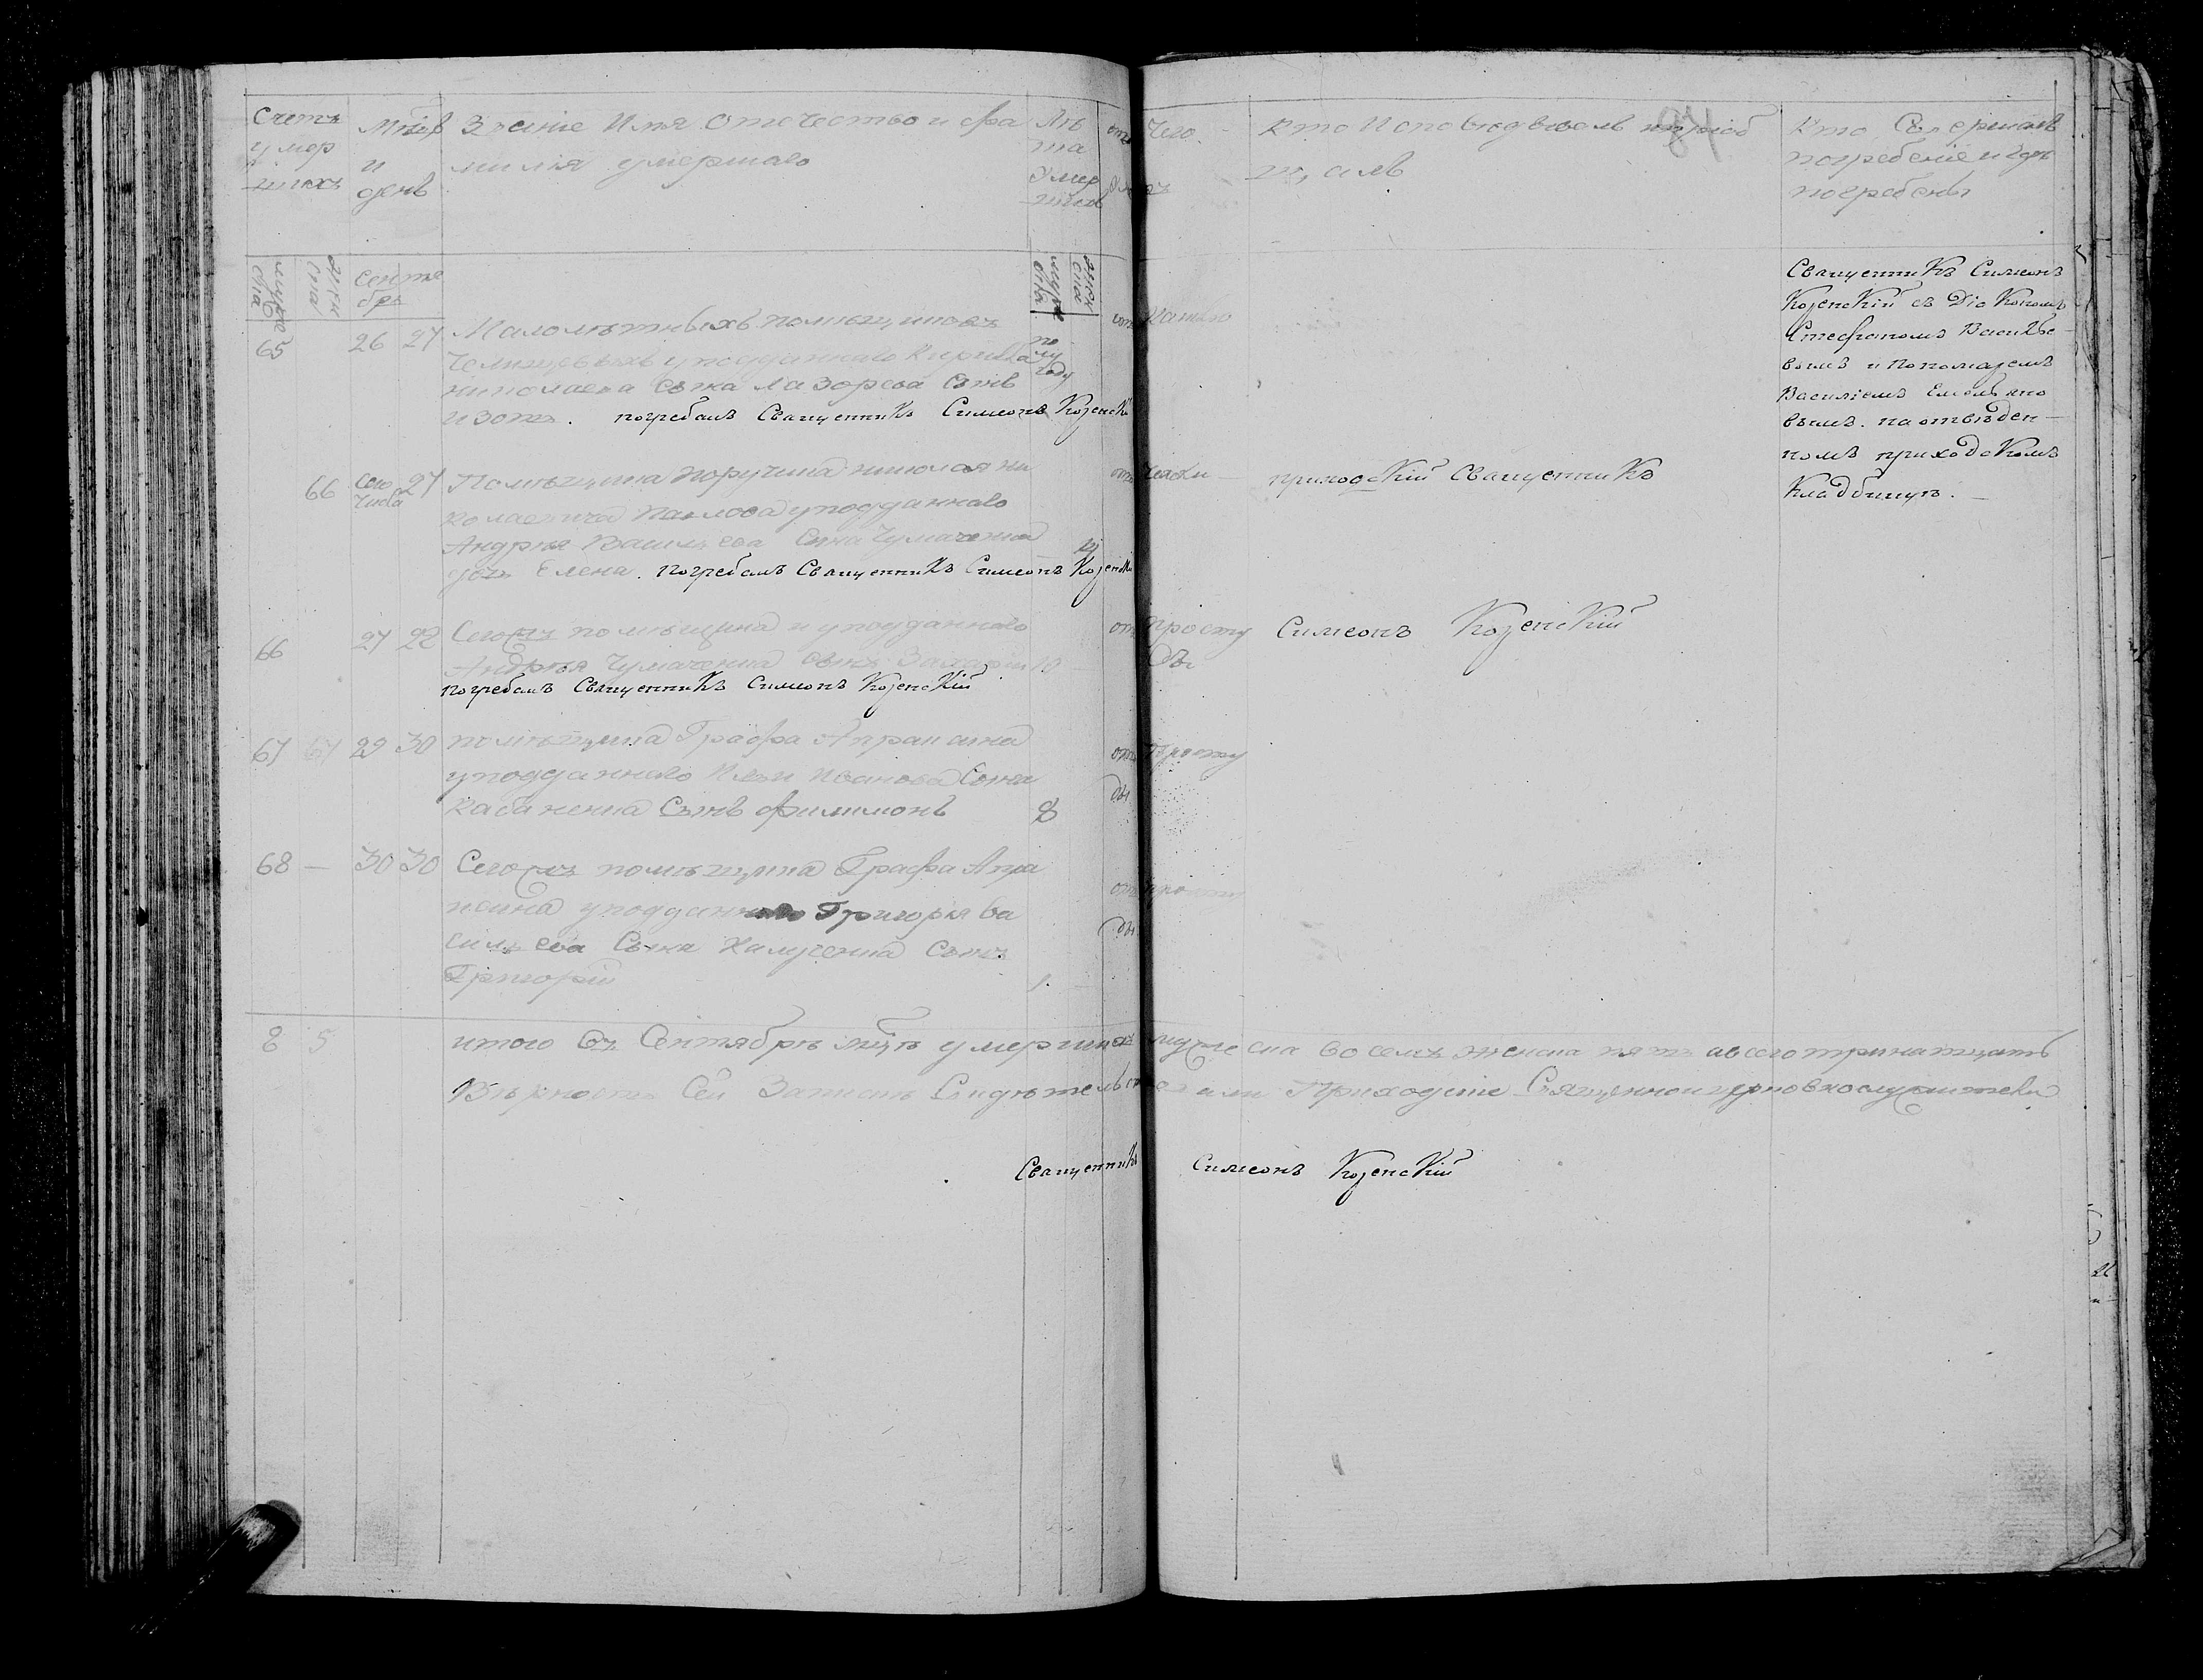 Счетъ умер шихъ
Мцъ и день
Званіе Имя Отечество и фа
милія умершаго
Лѣ та Умер шихъ
отъ Чего
Кто Исповѣдывалъ и пріоб
щалъ
84
Кто Совершалъ
погребеніе и гдѣ
погребены
мужеска
женска
сентя
брь
мужеска
женска
65 26 27 Малолѣтныхъ помѣщиковъ
Челищевыхъ у подданнаго Кирилла
николаева сына Лазорева сынъ
изотъ. погребалъ Священникъ Симеонъ Козенскій
по лу году
отъ Кашлю
Священникъ Симеонъ
Козенскій съ Діакономъ
Стефаномъ Василье
вымъ и Пономаремъ
Василіемъ Емельяно
вымъ. на отвѣден
номъ приходскомъ
Кладбищѣ.
66 сего числа 27 Помѣщика поручика николая ни
колаевича Павлова у подданнаго
Андрѣя Васильева Сына Чумаченка
дочь Елена. погребалъ Священникъ Симеонъ Козенскій
отъ
приходскій Священникъ
66 27 28 Сегожъ помѣщика и у подданнаго
Андрѣя Чумаченка сынъ Захарій 10
погребалъ Священникъ Симеонъ Козенскій
отъ Просту
ды
Симеонъ Козенскій
67 67 29 30 помѣщика Графа Апраксина
у подданнаго Ильи Иванова Сына
Кабаненка Сынъ Филимонъ 8
отъ Просту
ды
68 — 30 30 Сегожъ помѣщика Графа Апра
ксина у подданнаго Григорія Ва
сильева Сына Сынъ
Григорій 1.
отъ просту
ды
8 5 итого Въ Сентябрѣ мцѣ умершихъ мужеска восемъ женска пять а всего тринатцать
Вѣрность Сей Записи Свидѣтельствовали Приходскіе Священно и церковнослужители
Священникъ Симеонъ Козенскій